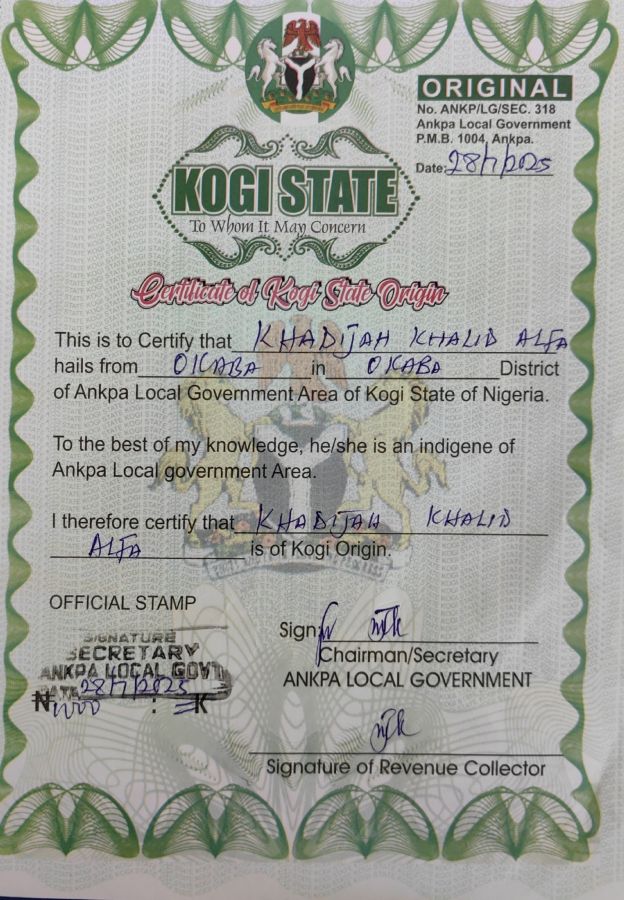 ORIGINAL
No. ANKP/LG/SEC. 318
Ankpa Local Government
P.M.B. 1004, Ankpa.
Date: 28/7/2025
KOGI STATE
To Whom It May Concern
Certificate of Kogi State Origin
This is to Certify that KHADIJAH KHALID ALFA
hails from OKABA in OKABA District
of Ankpa Local Government Area of Kogi State of Nigeria.
To the best of my knowledge, he/she is an indigene of
Ankpa Local government Area.
I therefore certify that KHADIJAH KHALID
ALFA is of Kogi Origin.
OFFICIAL STAMP
SIGNATURE
SECRETARY
ANKPA LOCAL GOVT
DATE 28/7/2025
₦ : K
Sign:
Chairman/Secretary
ANKPA LOCAL GOVERNMENT
Signature of Revenue Collector